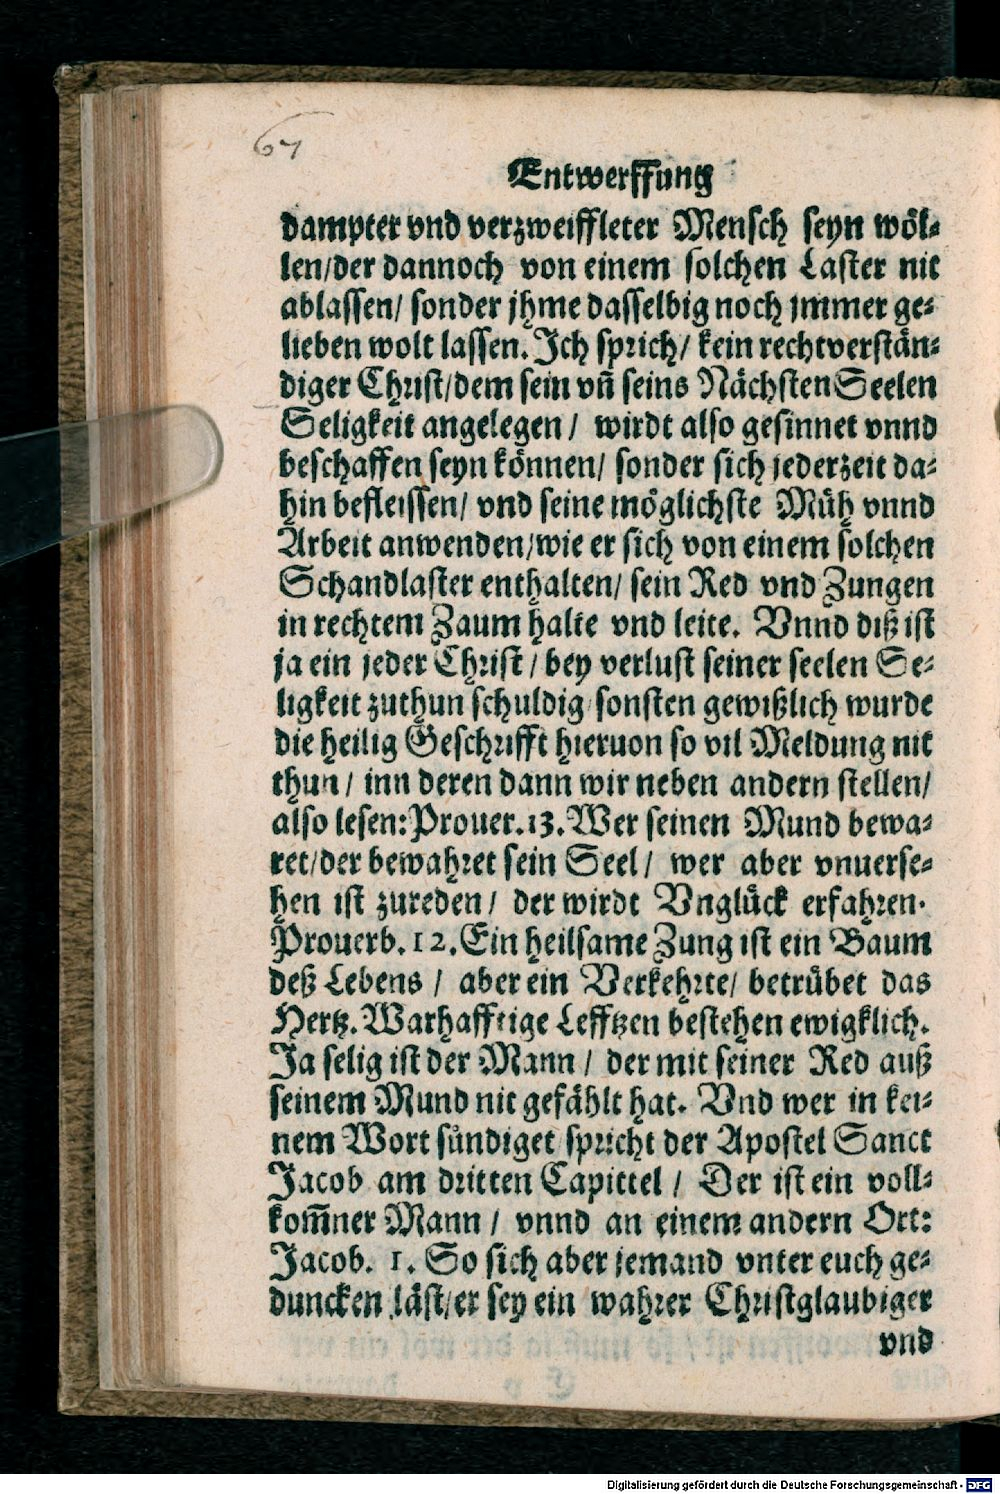 67
Entwerffung
dampter vnd verzweiffleter Mensch seyn wöl-
len/der dannoch von einem solchen Laster nit
ablassen/ sonder jhme dasselbig noch jmmer ge-
lieben wolt lassen. Ich sprich/ kein rechtverstän-
diger Christ/dem sein vñ seins Nächsten Seelen
Seligkeit angelegen/ wirdt also gesinnet vnnd
beschaffen seyn können/ sonder sich jederzeit da-
hin befleissen/ vnd seine möglichste Müh vnnd
Arbeit anwenden/wie er sich von einem solchen
Schandlaster enthalten/ sein Red vnd Zungen
in rechtem Zaum halte vnd leite. Vnnd diß ist
ja ein jeder Christ/ bey verlust seiner seelen Se-
ligkeit zuthun schuldig/sonsten gewißlich wurde
die heilig Geschrifft hieruon so vil Meldung nit
thun/ inn deren dann wir neben andern stellen/
also lesen: Prouer. 13. Wer seinen Mund bewa-
ret/der bewahret sein Seel/ wer aber vnuerse-
hen ist zureden/ der wirdt Vnglück erfahren.
Prouerb. 12. Ein heilsame Zung ist ein Baum
deß Lebens/ aber ein Verkehrte/ betrübet das
Hertz. Warhafftige Lefftzen bestehen ewigklich.
Ja selig ist der Mann/ der mit seiner Red auß
seinem Mund nit gefählt hat. Vnd wer in kei-
nem Wort sündiget spricht der Apostel Sanct
Jacob am dritten Capittel/ Der ist ein voll-
kom̄ner Mann/ vnnd an einem andern Ort:
Jacob. 1. So sich aber jemand vnter euch ge-
duncken läst/er sey ein wahrer Christglaubiger
vnd
Digitalisierung gefördert durch die Deutsche Forschungsgemeinschaft - DFG